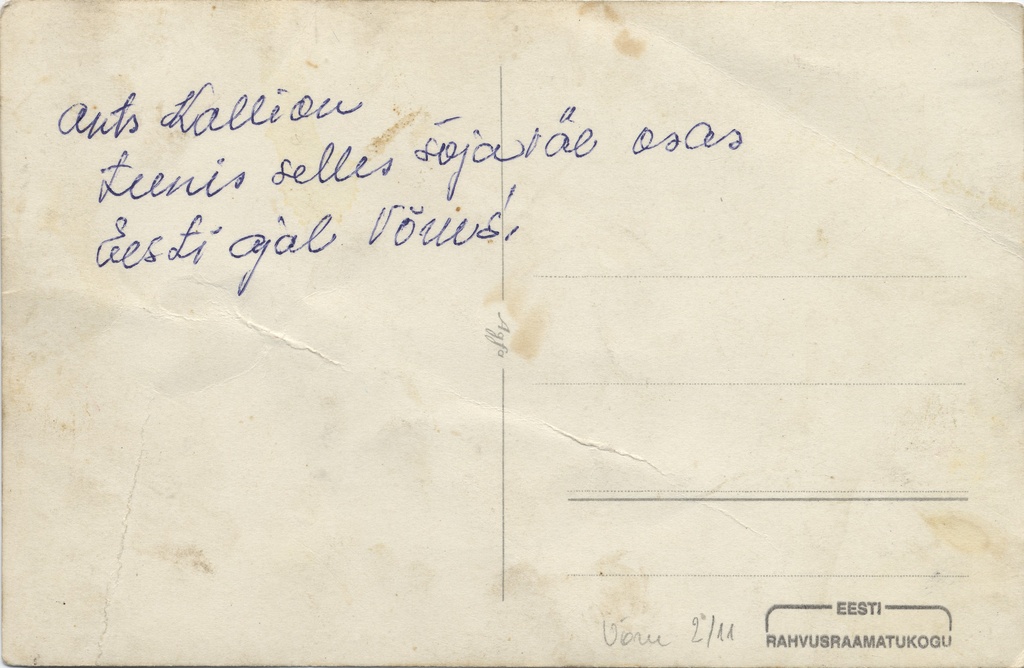 Ants Kallion
teenis selles sõjaväe osas
Eesti ajal Võrus!
Agfa
Võru 2/11
EESTI
RAHVUSRAAMATUKOGU